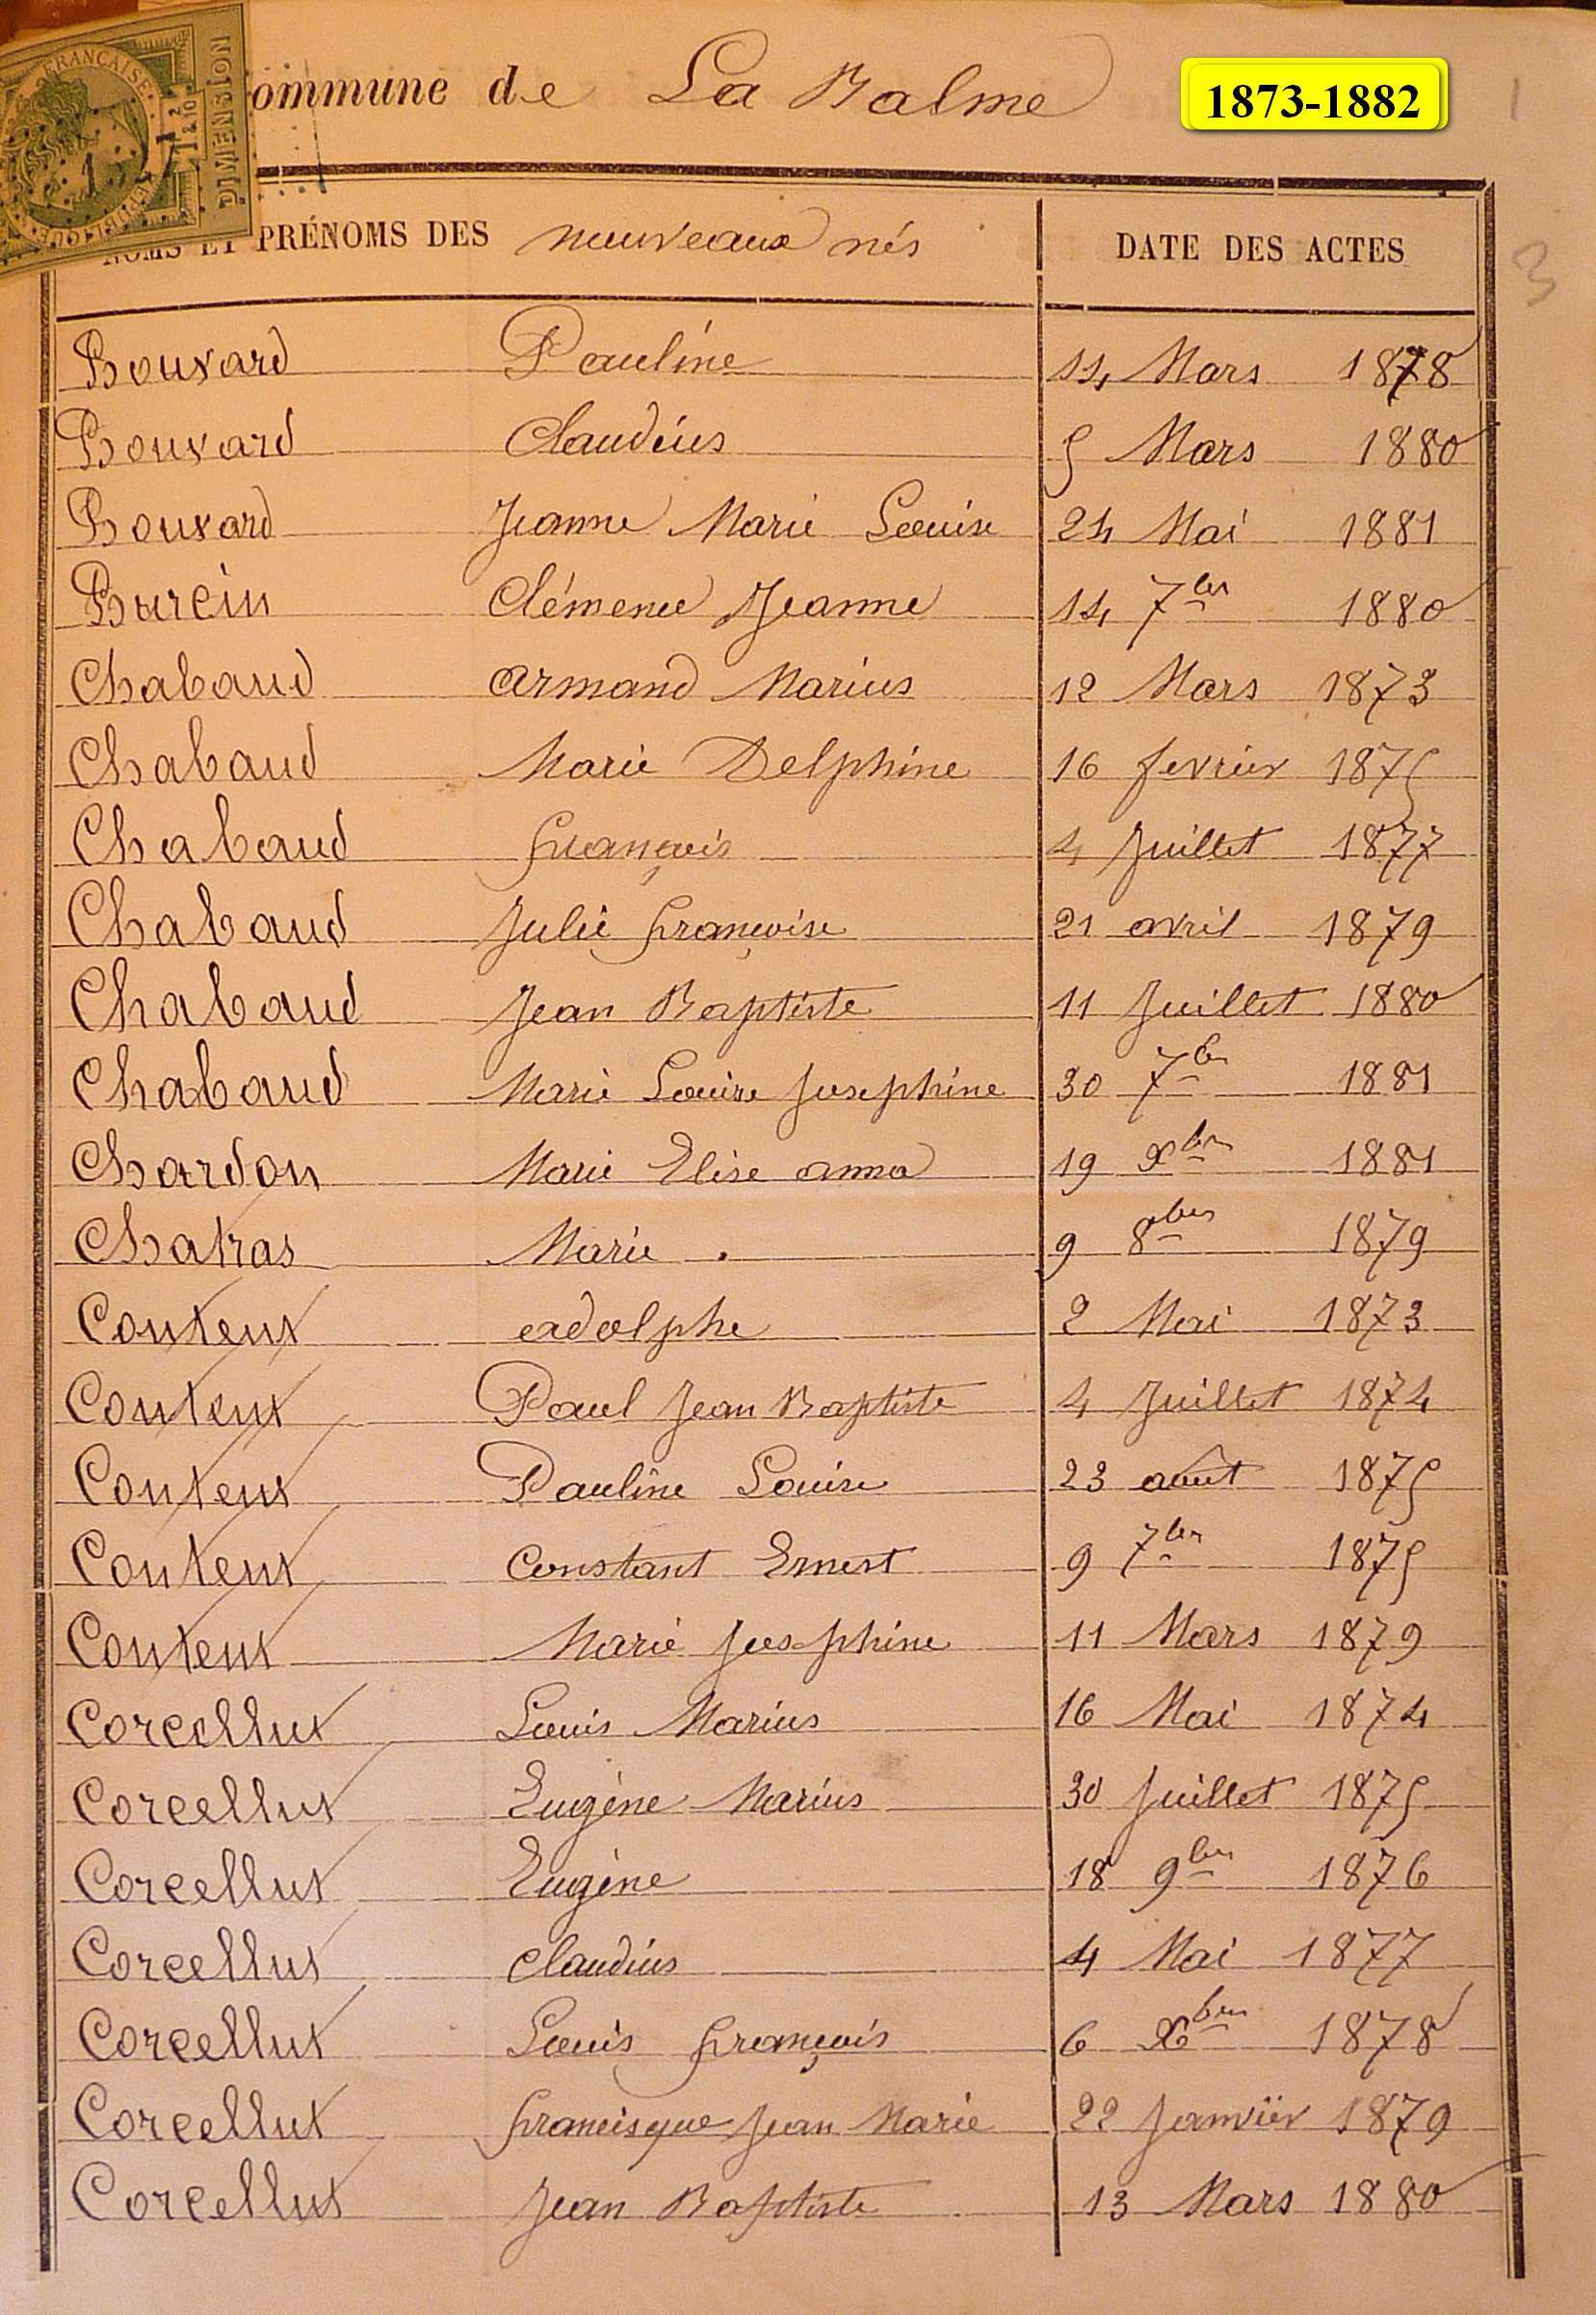 FRANÇAISE
DIMENSION
ommune de La Balme
1873-1882
1
NOMS ET PRÉNOMS DES nouveaux nés DATE DES ACTES
3
Bouvard Pauline 14 Mars 1878
Bouvard Claudius 5 Mars 1880
Bouvard Jeanne Marie Louise 24 Mai 1881
Burcin Clémence Jeanne 14 7bre 1880
Chabaud armand Marius 12 Mars 1873
Chabaud Marie Delphine 16 fevrier 1875
Chabaud françois 4 Juillet 1877
Chabaud Julie françoise 21 avril 1879
Chabaud Jean Baptiste 11 Juillet 1880
Chabaud Marie Louise Josephine 30 7bre 1881
Chardon Marie Elise anna 19 Xbre 1881
Chatras Marie . 9 8bre 1879
Conteux adolphe 2 Mai 1873
Conteux Paul Jean Baptiste 4 Juillet 1874
Conteux Pauline Louise 23 août 1875
Conteux Constant Ernest 9 7bre 1875
Conteux Marie Josephine 11 Mars 1879
Corcellux Louis Marius 16 Mai 1874
Corcellux Eugène Marius 30 Juillet 1875
Corcellux Eugène 18 9bre 1876
Corcellux Claudius 4 Mai 1877
Corcellux Louis françois 6 Xbre 1878
Corcellux francisque Jean Marie 22 Janvier 1879
Corcellux Jean Baptiste 13 Mars 1880